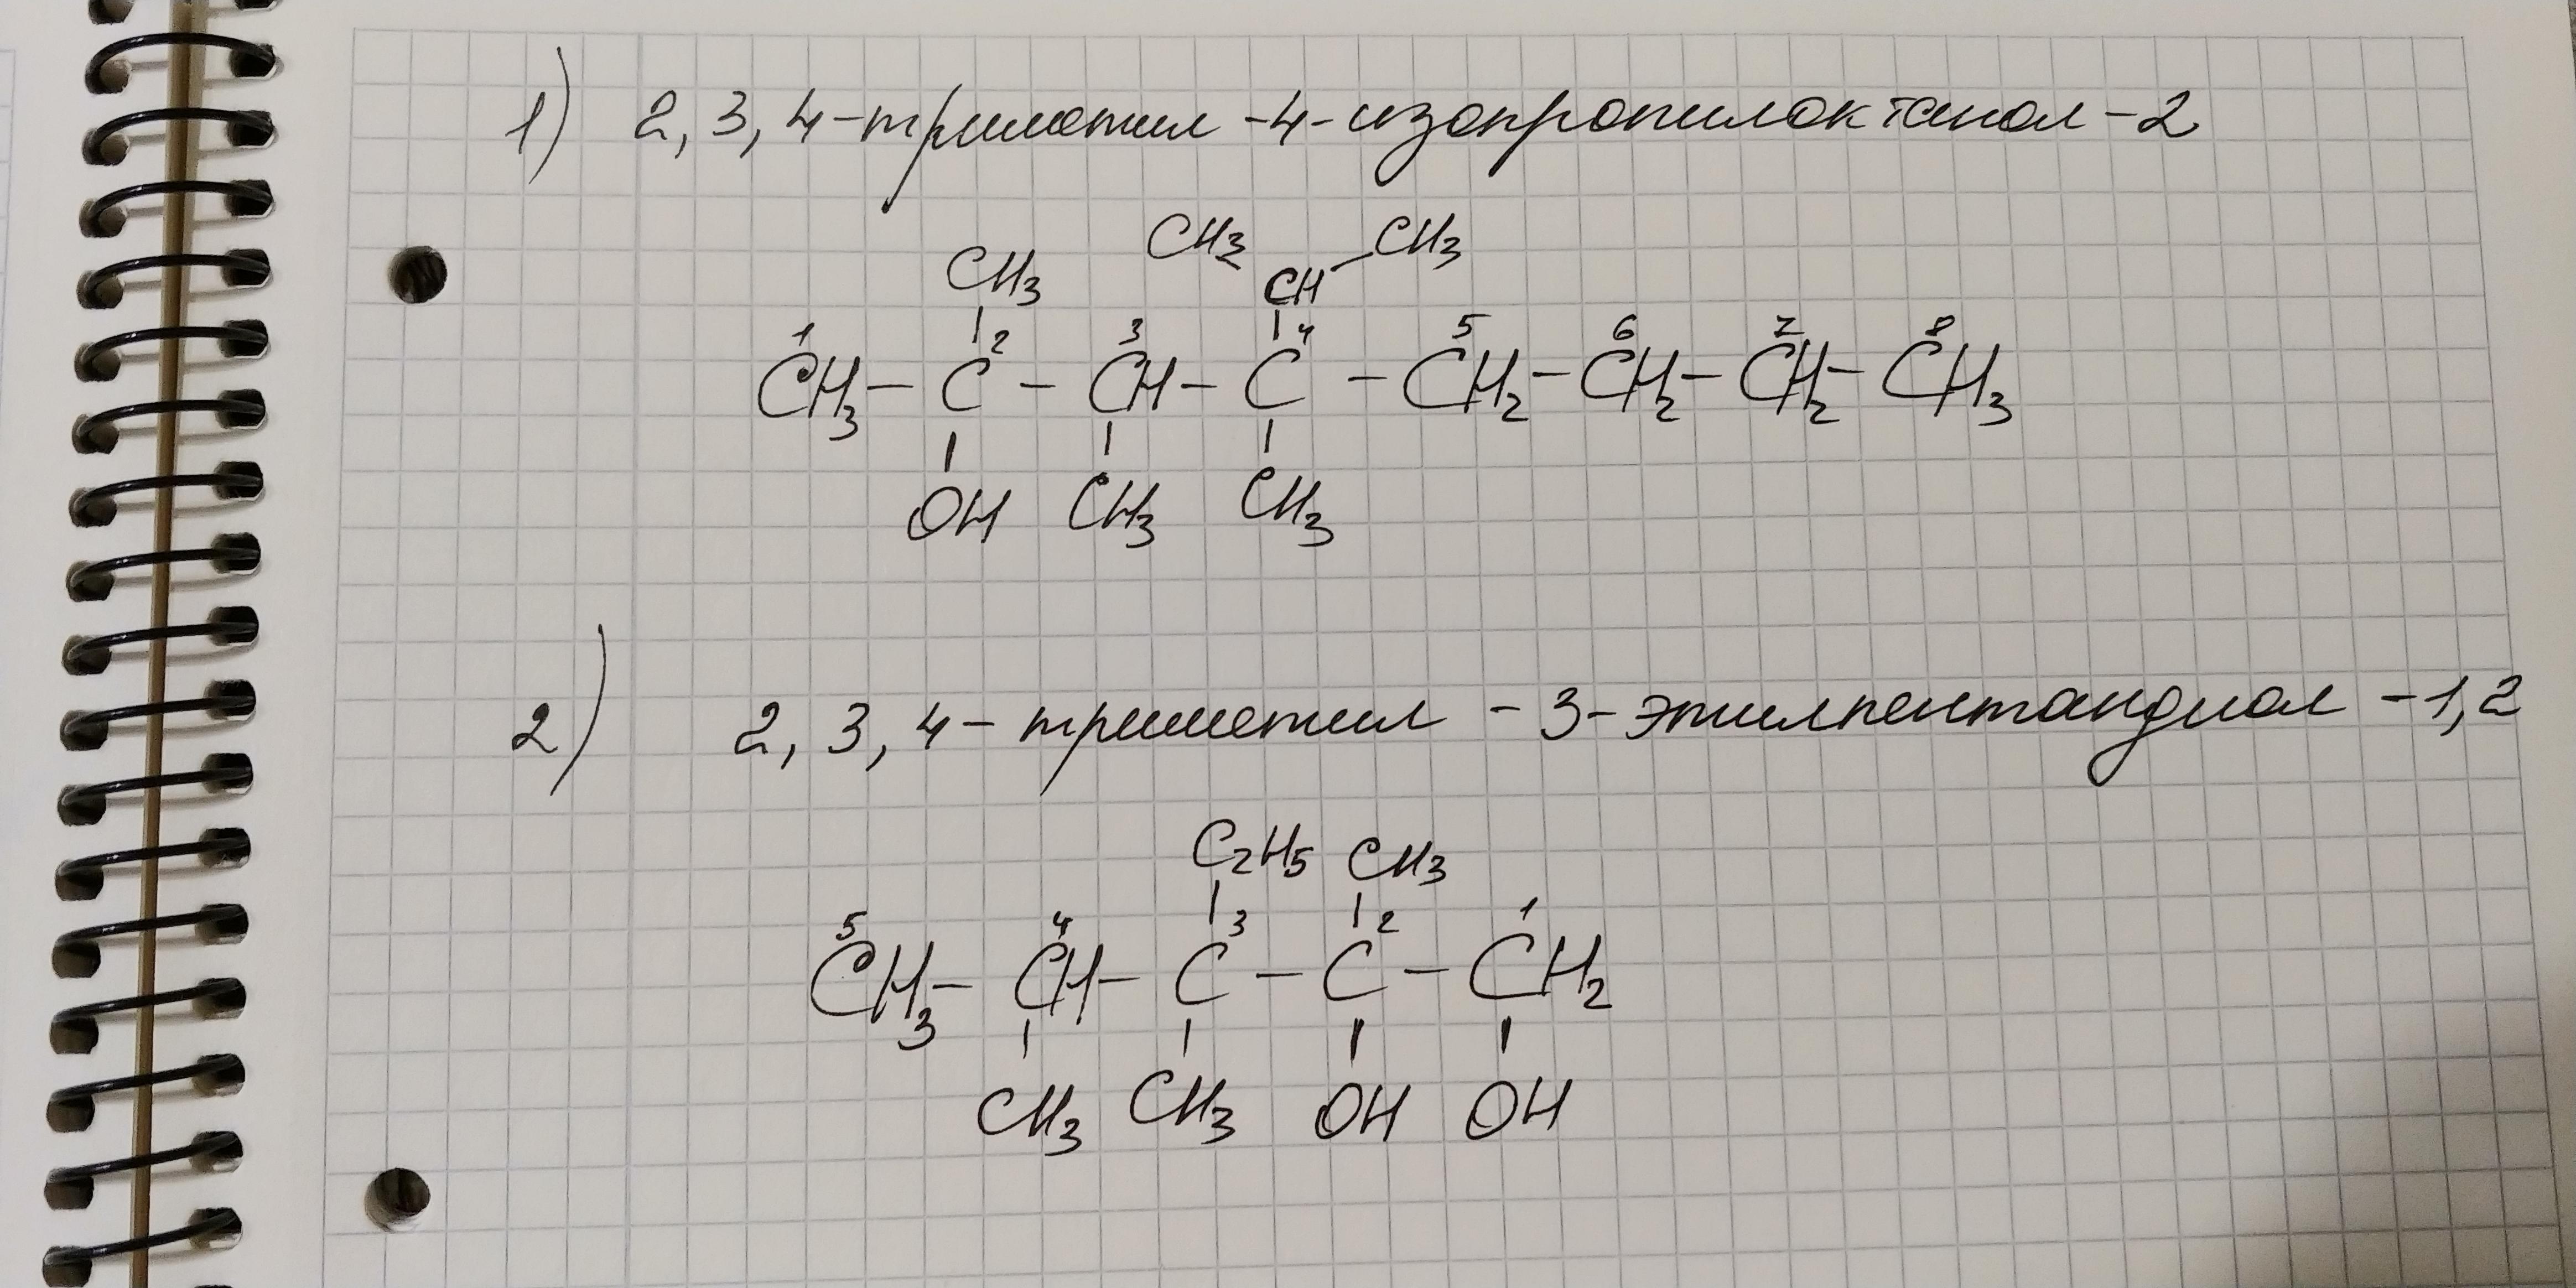 1) 2, 3, 4-триметил-4-изопропилоктанол-2
CH₃ CH₃ CH₃
CH
1 2 3 4 5 6 7 8
CH₃ - C - CH - C - CH₂ - CH₂ - CH₂ - CH₃
OH CH₃ CH₃
2) 2, 3, 4-триметил-3-этилпентандиол-1,2
C₂H₅ CH₃
5 4 3 2 1
CH₃ - CH - C - C - CH₂
CH₃ CH₃ OH OH